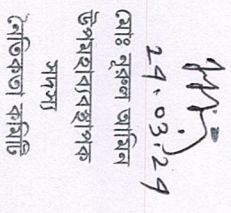 মোঃ নূরুল আমিন
উপমহাব্যবস্থাপক
সদস্য
নৈতিকতা কমিটি